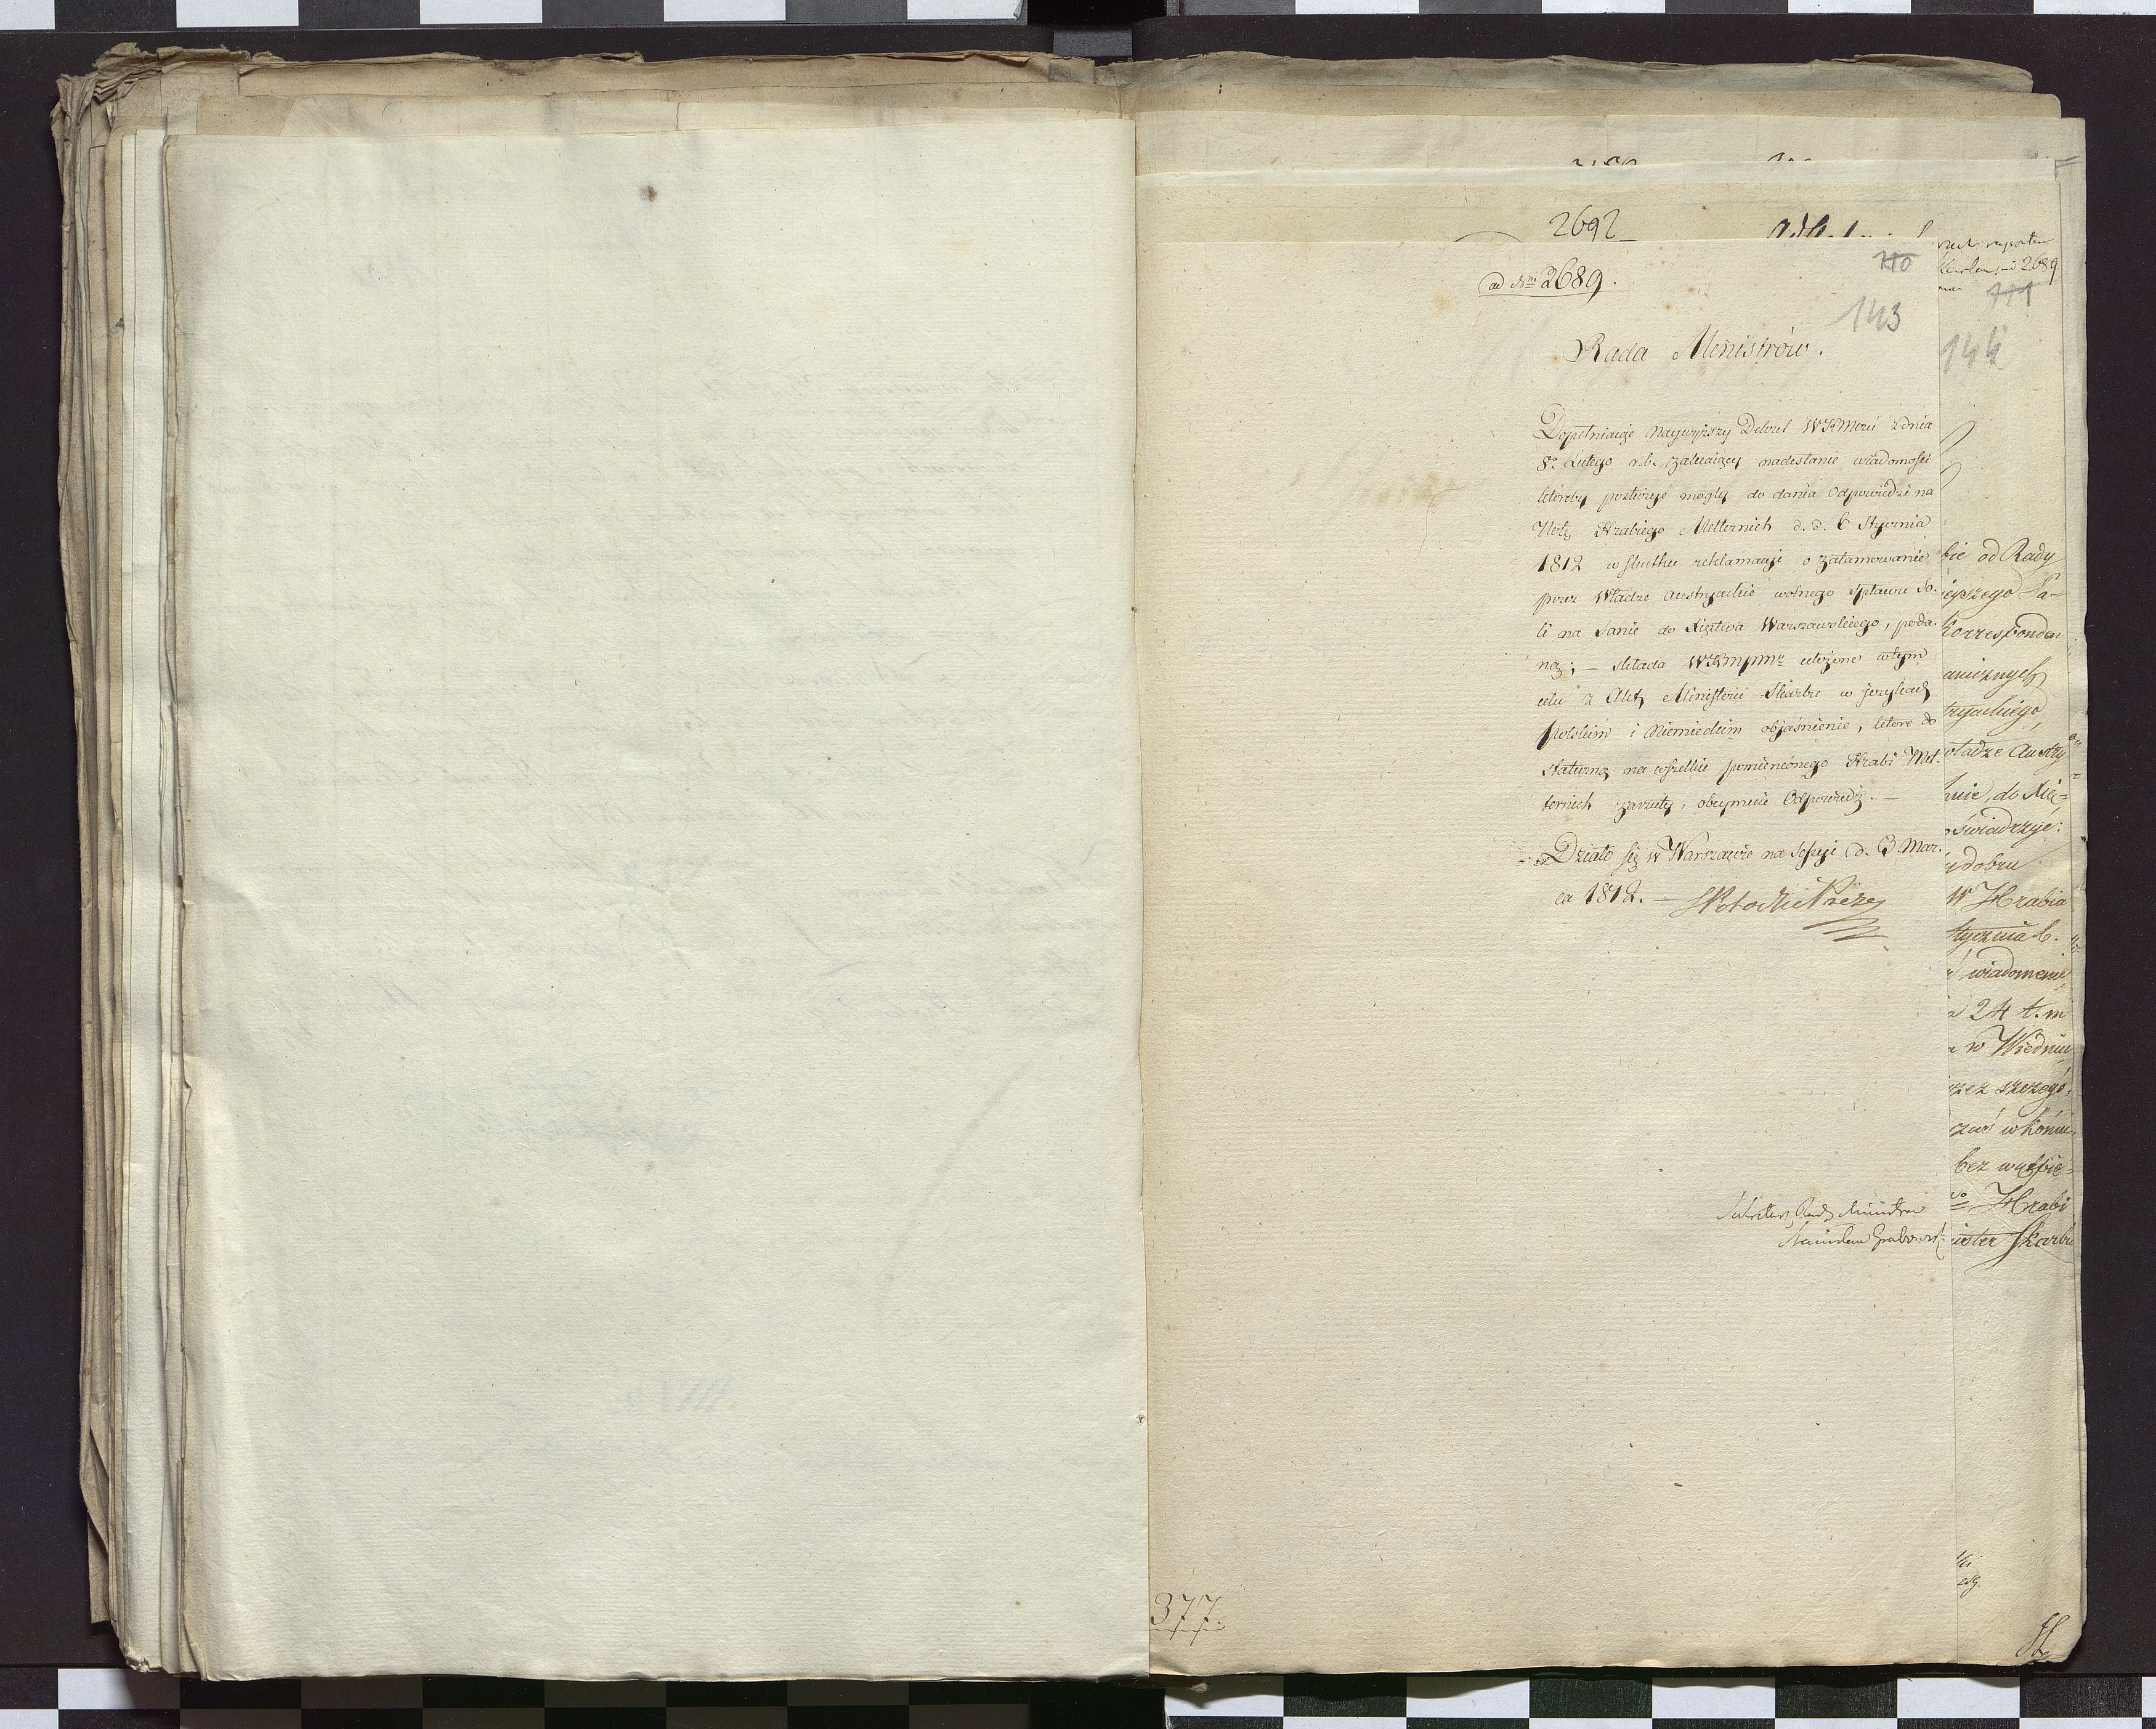 2692
ad Nrm 2689.
110
143
Rada Ministrów.
Dopełniaiąc Naywyższy Dekret WKMości z dnia
8o Lutego r.b. zalecaiący nadesłanie wiadomości
któreby posłużyć mogły do dania Odpowiedzi na
Notę Hrabiego Metternich d.d. 6 Stycznia
1812 w skutku reklamacyi o zatamowanie
przez Władze Austryackie wolnego Spławu So-
li na Sanie do Xięstwa Warszawskiego, poda-
ną; — składa WKMPMu ułożone w tym
celu z Akt Ministerii Skarbu w językach
polskim i Niemieckim objaśnienie, które do-
stateczną na wszelkie pomienionego Hrabi Met-
ternich zarzuty, obeymuie Odpowiedź. —
Działo się w Warszawie na Sessyi d. 3 Mar-
ca 1812. — SPotocki Prezes
Sekretarz Rady Ministrów
Stanisław Grabowski
377.
2689
111
144
bie od Rady
ieyszego Pa-
Korresponden
anicznych
tryackiego,
władze Austry
nie, do Xię-
oświadczyć:
ydobru
W Hrabia
Stycznia b.
wiadomienie
24 t.m
w Wiedniu
rzez szczegó-
czas w końcu
bez wątpie-
Hrabi
ister Skarbu